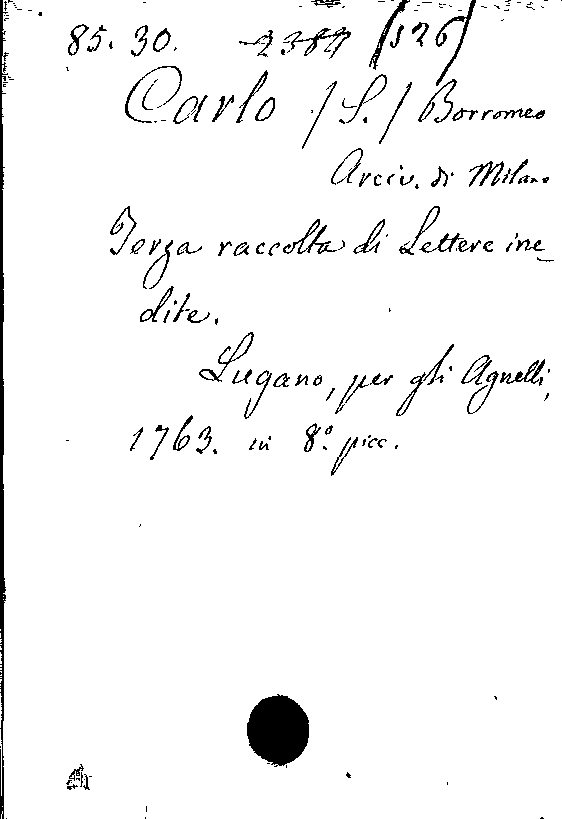 85. 30. 2384 (126)
Carlo /S./ Borromeo
Arciv. di Milano
Terza raccolta di Lettere ine_
dite.
Lugano, per gli Agnelli,
1763. in 8.º picc.